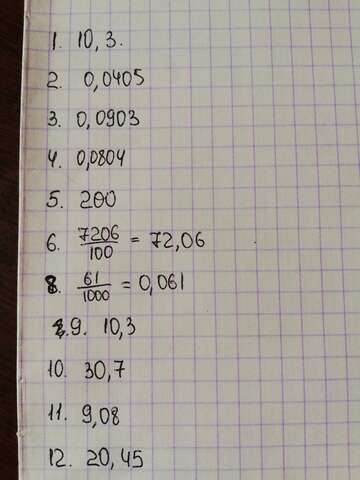 1. 10,3.
2. 0,0405
3. 0,0903
4. 0,0804
5. 200
6. 7206/100 = 72,06
8. 61/1000 = 0,061
9. 10,3
10. 30,7
11. 9,08
12. 20,45